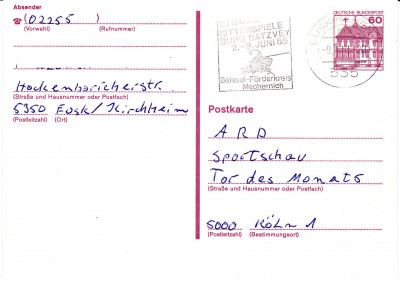 Absender
☎ (02255 )
(Vorwahl) (Rufnummer)
5350 Eusk/Kirchheim
(Straße und Hausnummer oder Postfach)
(Postleitzahl) (Ort)
RITTERSPIELE
SATZVEY
JUNI 85
Behinde-Förderkreis
Mechernich
535
DEUTSCHE BUNDESPOST
60
Postkarte
ARD
Sportschau
Tor des Monats
(Straße und Hausnummer oder Postfach)
5000 Köln 1
(Postleitzahl) (Bestimmungsort)